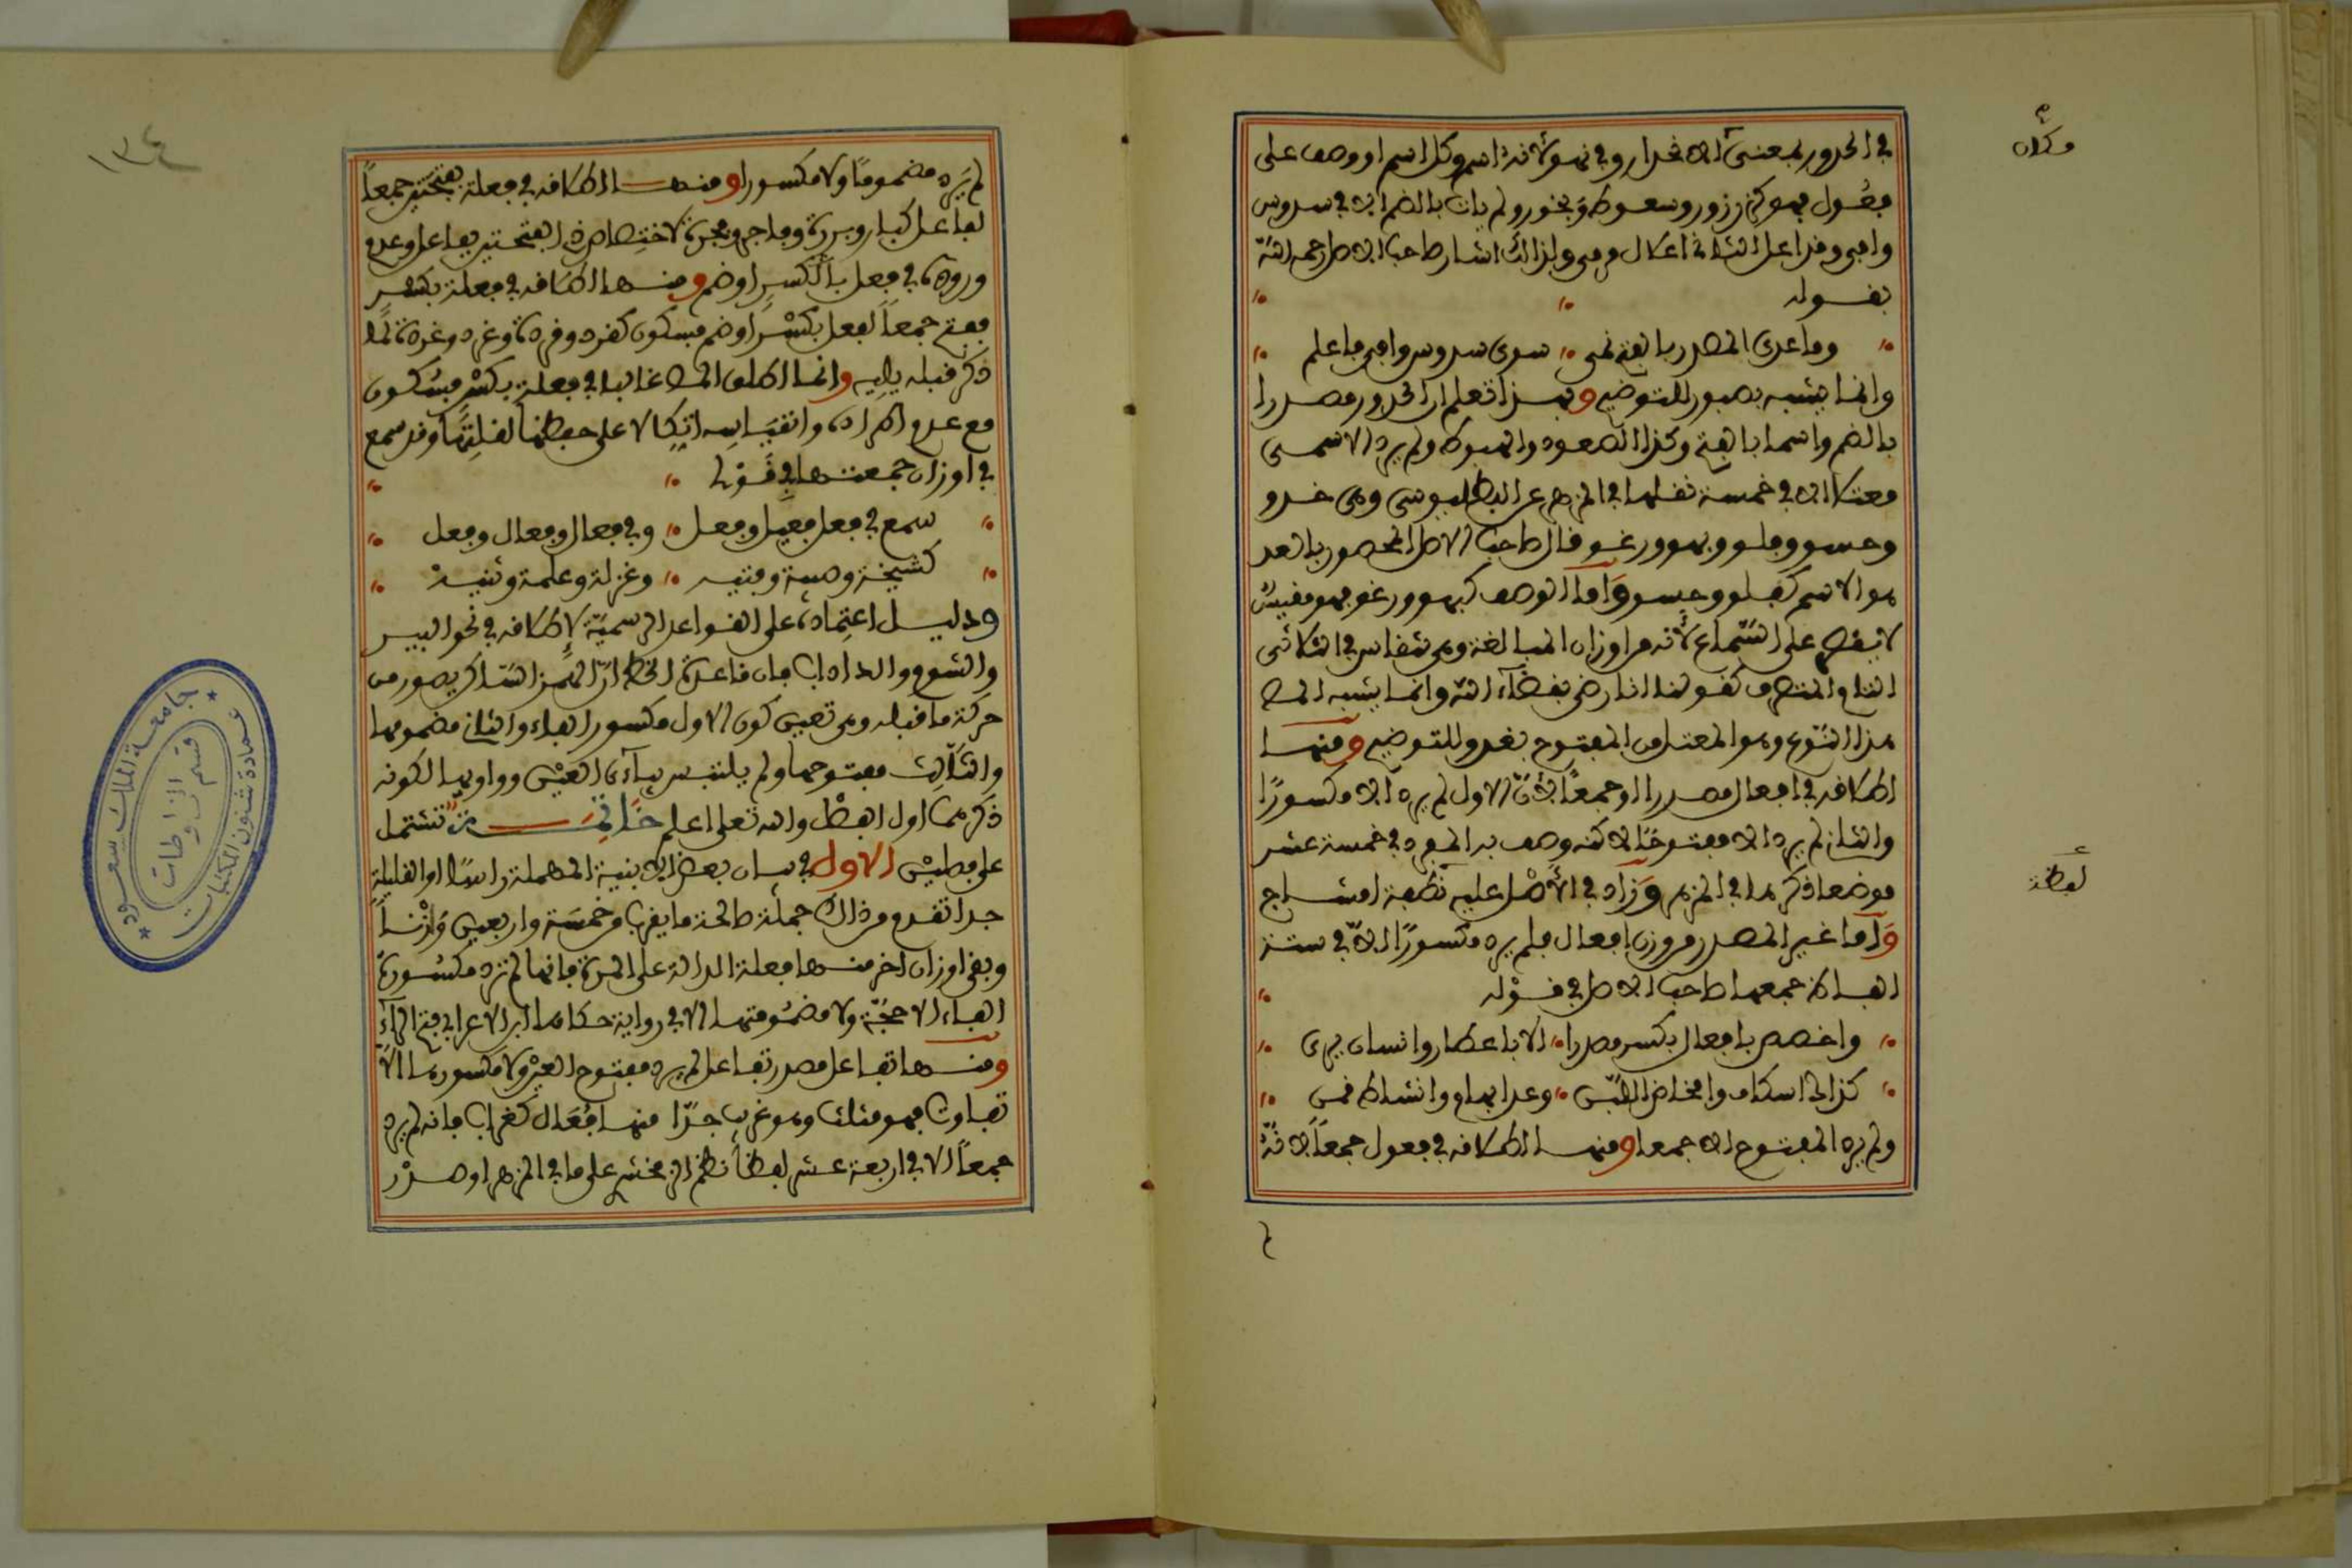 في الحدور بمعنى الانحدار وفي نحو لانه اسم وكل اسم او وصف على
فعول فهو كزرزور وسعوط وبخور ولم يات بالضم الا في سدوس
واشار صاحب الاصل رحمه الله
بقوله
وما عدى المصدر بالفتح نمى سوى سدوس واجي ما علم
وانما يشبه بصبور للتوضيح وبهذا تعلم ان الحدور مصدرا
بالضم واسما بالفتح وكذا الصعود والهبوط ولم يرد الاسم
معتلا الا في خمسة نقلها في المزهر عن البطليوسي وهي عدو
وحسو وفلو وبهو ورغو قال صاحب الاصل المحصور بالعد
هو الاسم كفلو وحسو واما الوصف كبهو ورغو فهو مقيس
لا يقصر على السماع لانه من اوزان المبالغة وهي تنقاس في الثلاثي
التام المتصرف كقولنا انا رضي بقضاء الله وانما يشبه الط
هذا النوع وهو المعتل من المفتوح بغدو للتوضيح ومنها
اطلاقه في افعال مصدرا او جمعا لان الاول لم يرد الا مكسورا
والثاني لم يرد الا مفتوحا لاكنه وصف به المفرد في خمسة عشر
موضعا ذكرها في المزهر وزاد في الاصل عليه نطفة امشاج
واما غير المصدر من وزن افعال فلم يرد مكسورا الا في ستة
الفاظ جمعها صاحب الاصل في قوله
واخصص بافعال بكسر مصدرا الا باعصار وانسان يرى
كذا اسكاف وامخاض اللبن وعد ابهام وانشاط فمن
ولم يرد المفتوح الا جمعا ومنها اطلاقه في فعول جمعا لانه
لم
مكان
لفظة
لم يرد مضموما ولا مكسورا ومنها اطلاقه في فعلة بفتحتين جمعا
لفاعل كبار وبررة وفاجر وفجرة لاختصاص ذي الفتحتين بفاعل وعدم
وروده في فعل بالكسر او ضم ومنها اطلاقه في فعلة بكسر
ففتح جمعا لفعل بكسر او ضم فسكون كقرد وقردة وغرد وغردة لما
ذكر قبله يليه وانما اطلق الط غالبا في فعلة بكسر فسكون
مع عدم اطراده وانقياسه اتكالا على حفظها لقلتها وقد سمع
في اوزان جمعتها في قولي
سمع في فعل فعيل وفعل وفي فعال وفعال وفعل
كشيخة وصبية وفتية وغزلة وغلمة وثنية
ودليل اعتماده على القواعد الرسمية لاطلاقه في نحو البير
والشوم والداداب فان قاعدة الخط ان الهمز الساكن يصور من
حركة ما قبله وهي تعين كون الاول مكسور الفاء والثاني مضمومها
والثالث مفتوحها ولم يلتبس بياءي العين وواويها لكونه
ذكرهما اول الفصل والله تعلى اعلم خاتمة تشتمل
على مطلبين الاول في بيان بعض الابنية المهملة راسا او القليلة
جدا تقدم من ذالك جملة صالحة ما يقرب من خمسة واربعين وزنا
وبقي اوزان اخر منها فعلة الدالة على المرة فانها لم ترد مكسورة
الفاء الا حجة ولا مضمومتها الا في رواية حكاها ابن الاعرابي بفتح الراء
ومنها تفاعل مصدر تفاعل لم يرد مفتوح العين ولا مكسورها الا
تفاوت فهو مثلث وهو غريب جدا منها فعال كغراب فانه لم يرد
جمعا الا في اربعة عشر لفظا نظم الزمخشري على ما في المزهر او صدر
١٣٤
جامعة الملك سعود
عمادة شئون المكتبات
قسم المخطوطات